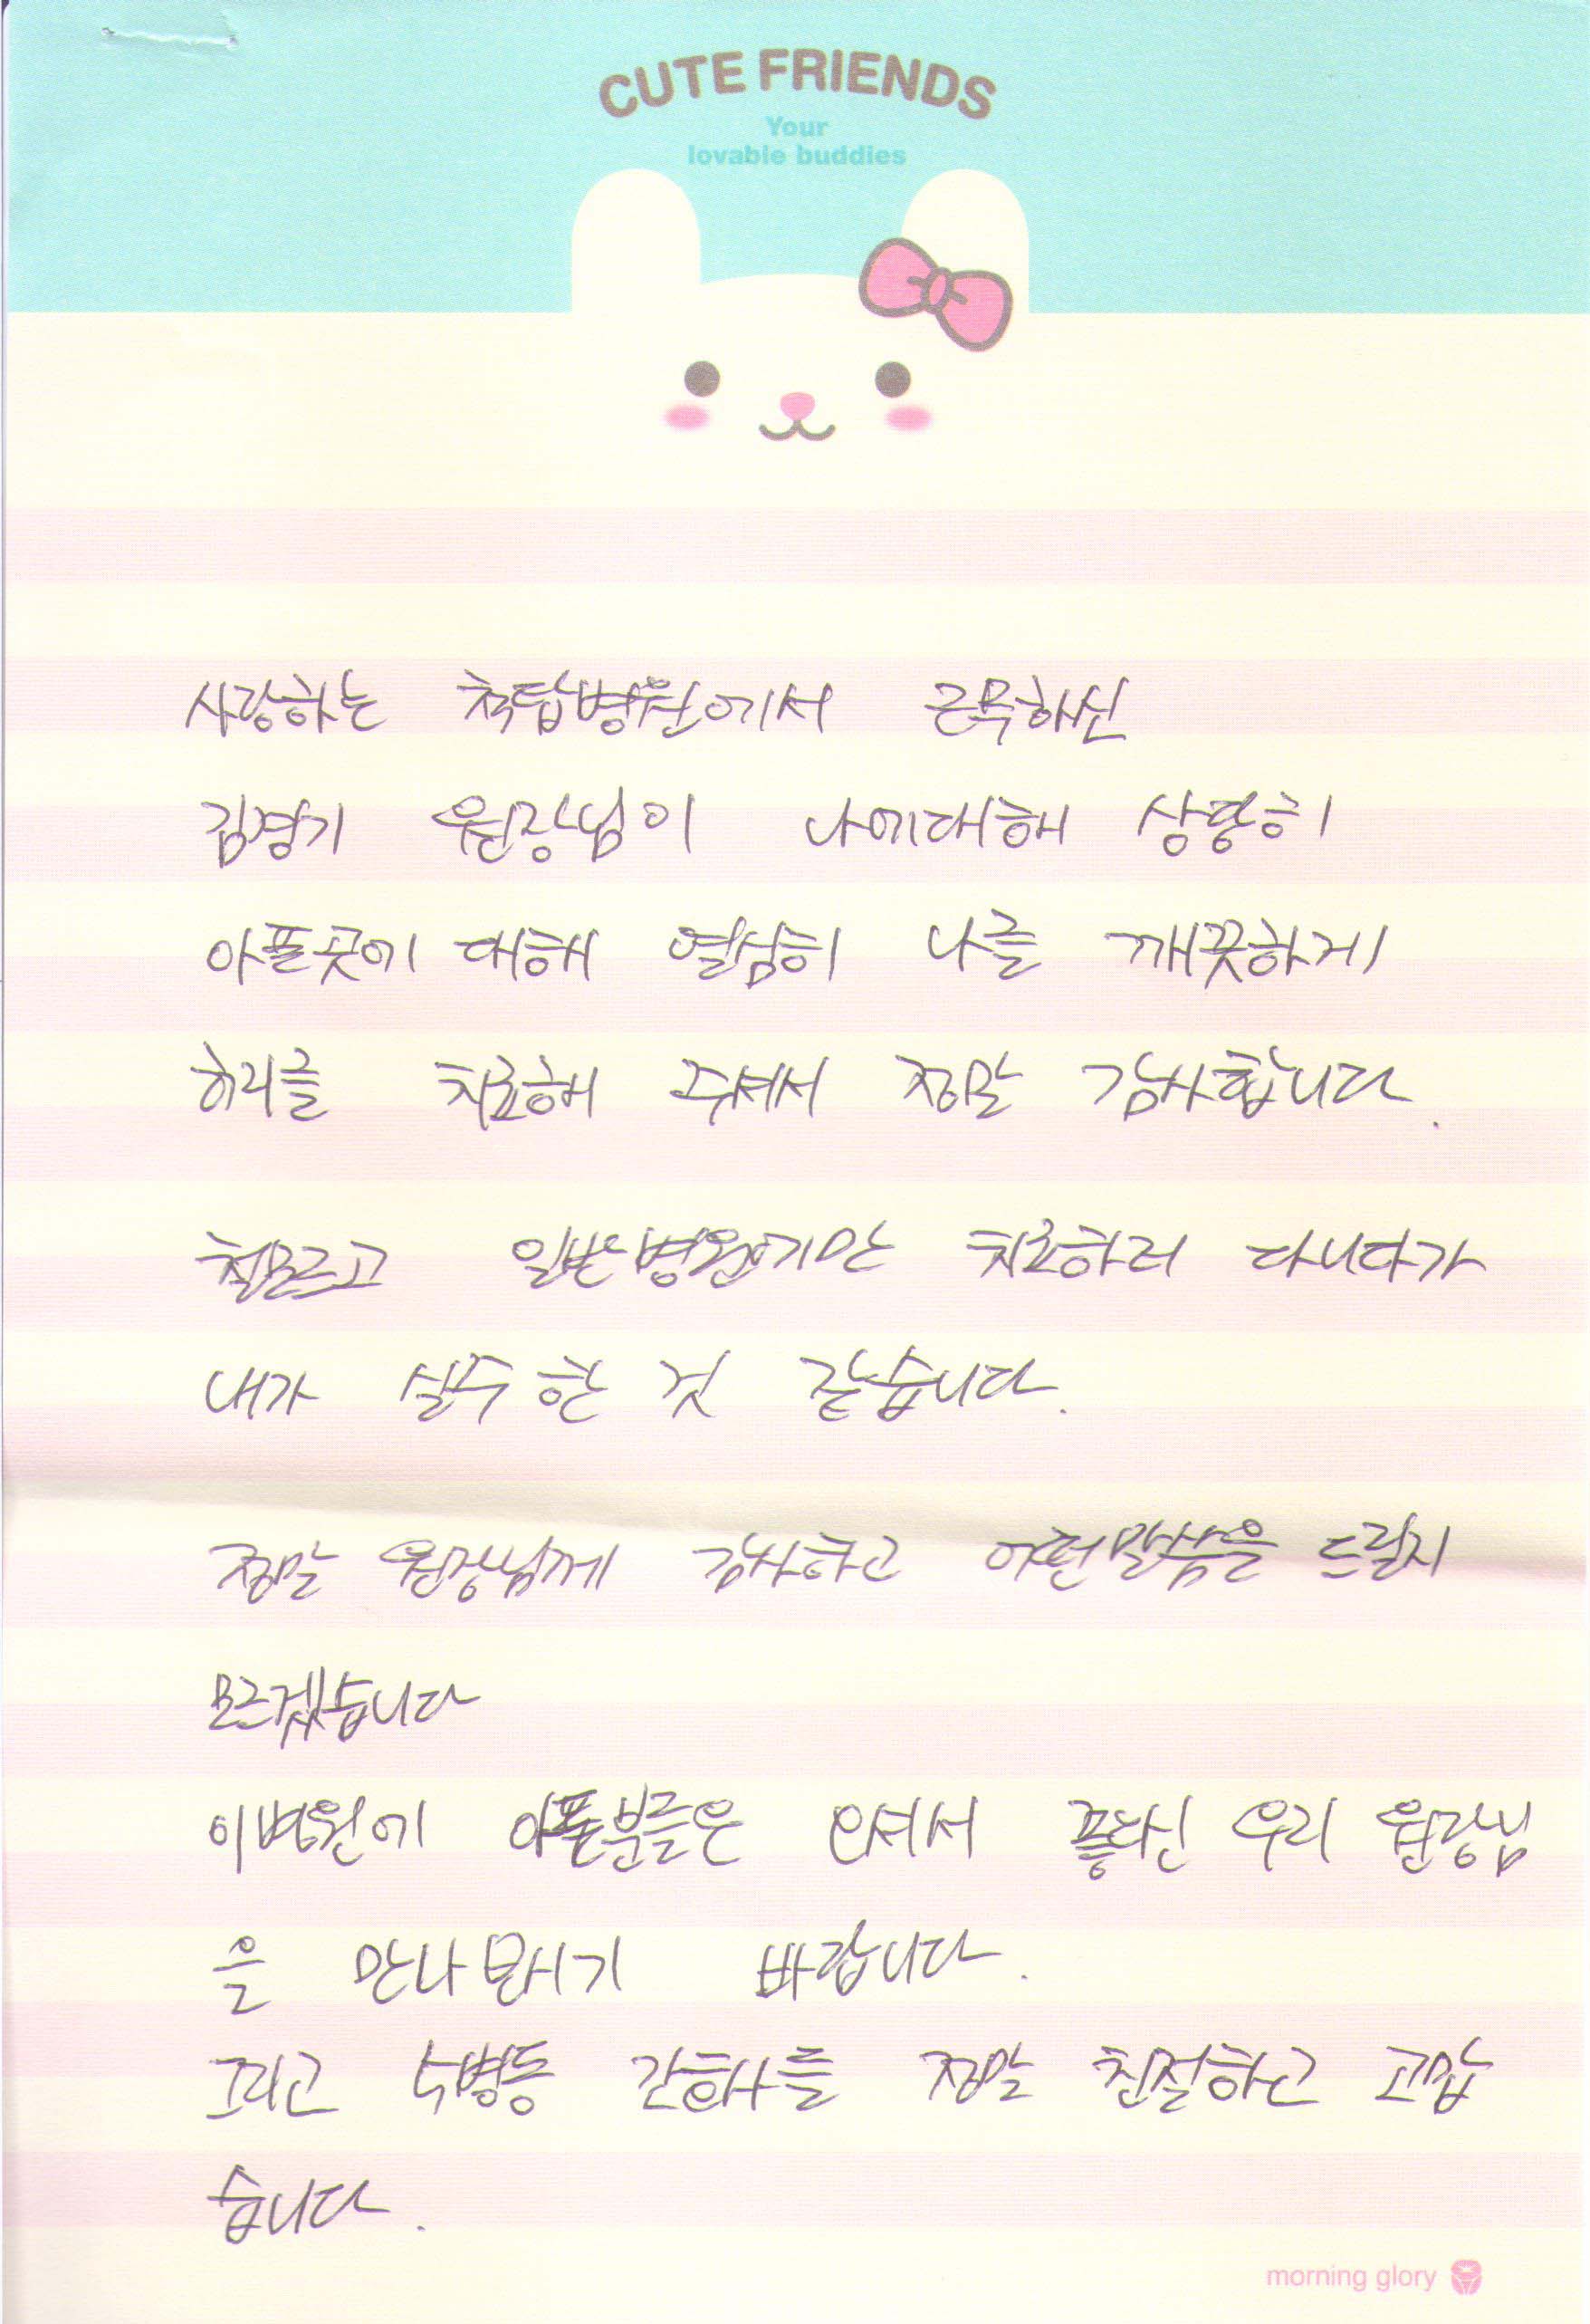 CUTE FRIENDS
Your
lovable buddies
사랑하는 척탑병원에서 근무하신
김경기 원장님이 나에대해 상황히
아픈곳에 대해 열심히 나를 깨끗하게
허리를 치료해 주셔서 정말 감사합니다.
철모르고 일반병원에만 치료하러 다니다가
내가 실수한 것 같습니다.
정말 원장님께 감사하고 어떤말씀을 드릴지
모르겠습니다
이병원에 아픈분들은 오셔서 우리 원장님
을 만나보시기 바랍니다.
그리고 병동 간호사들 정말 친절하고 고맙
습니다.
morning glory